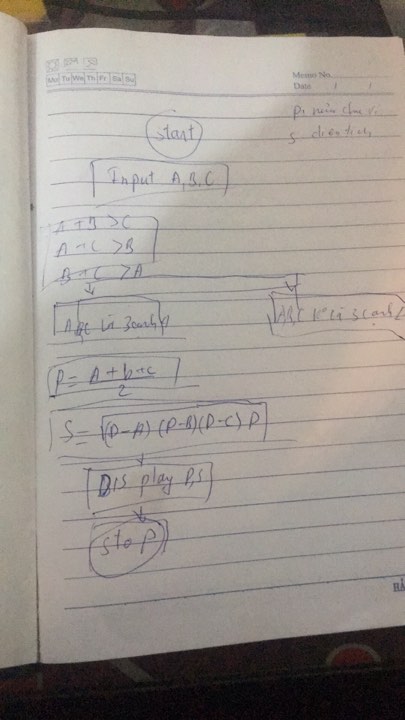 Mo Tu We Th Fr Sa Su
Memo No.
Date / /
P: nửa chu vi
S diện tích
start
Input A, B, C
A + B > C
A + C > B
B + C > A
ABC là 3 cạnh
ABC là 3 cạnh
P = A + b + c
2
S = √(P-A) (P-B)(P-C) P
DIS play P,S
stop